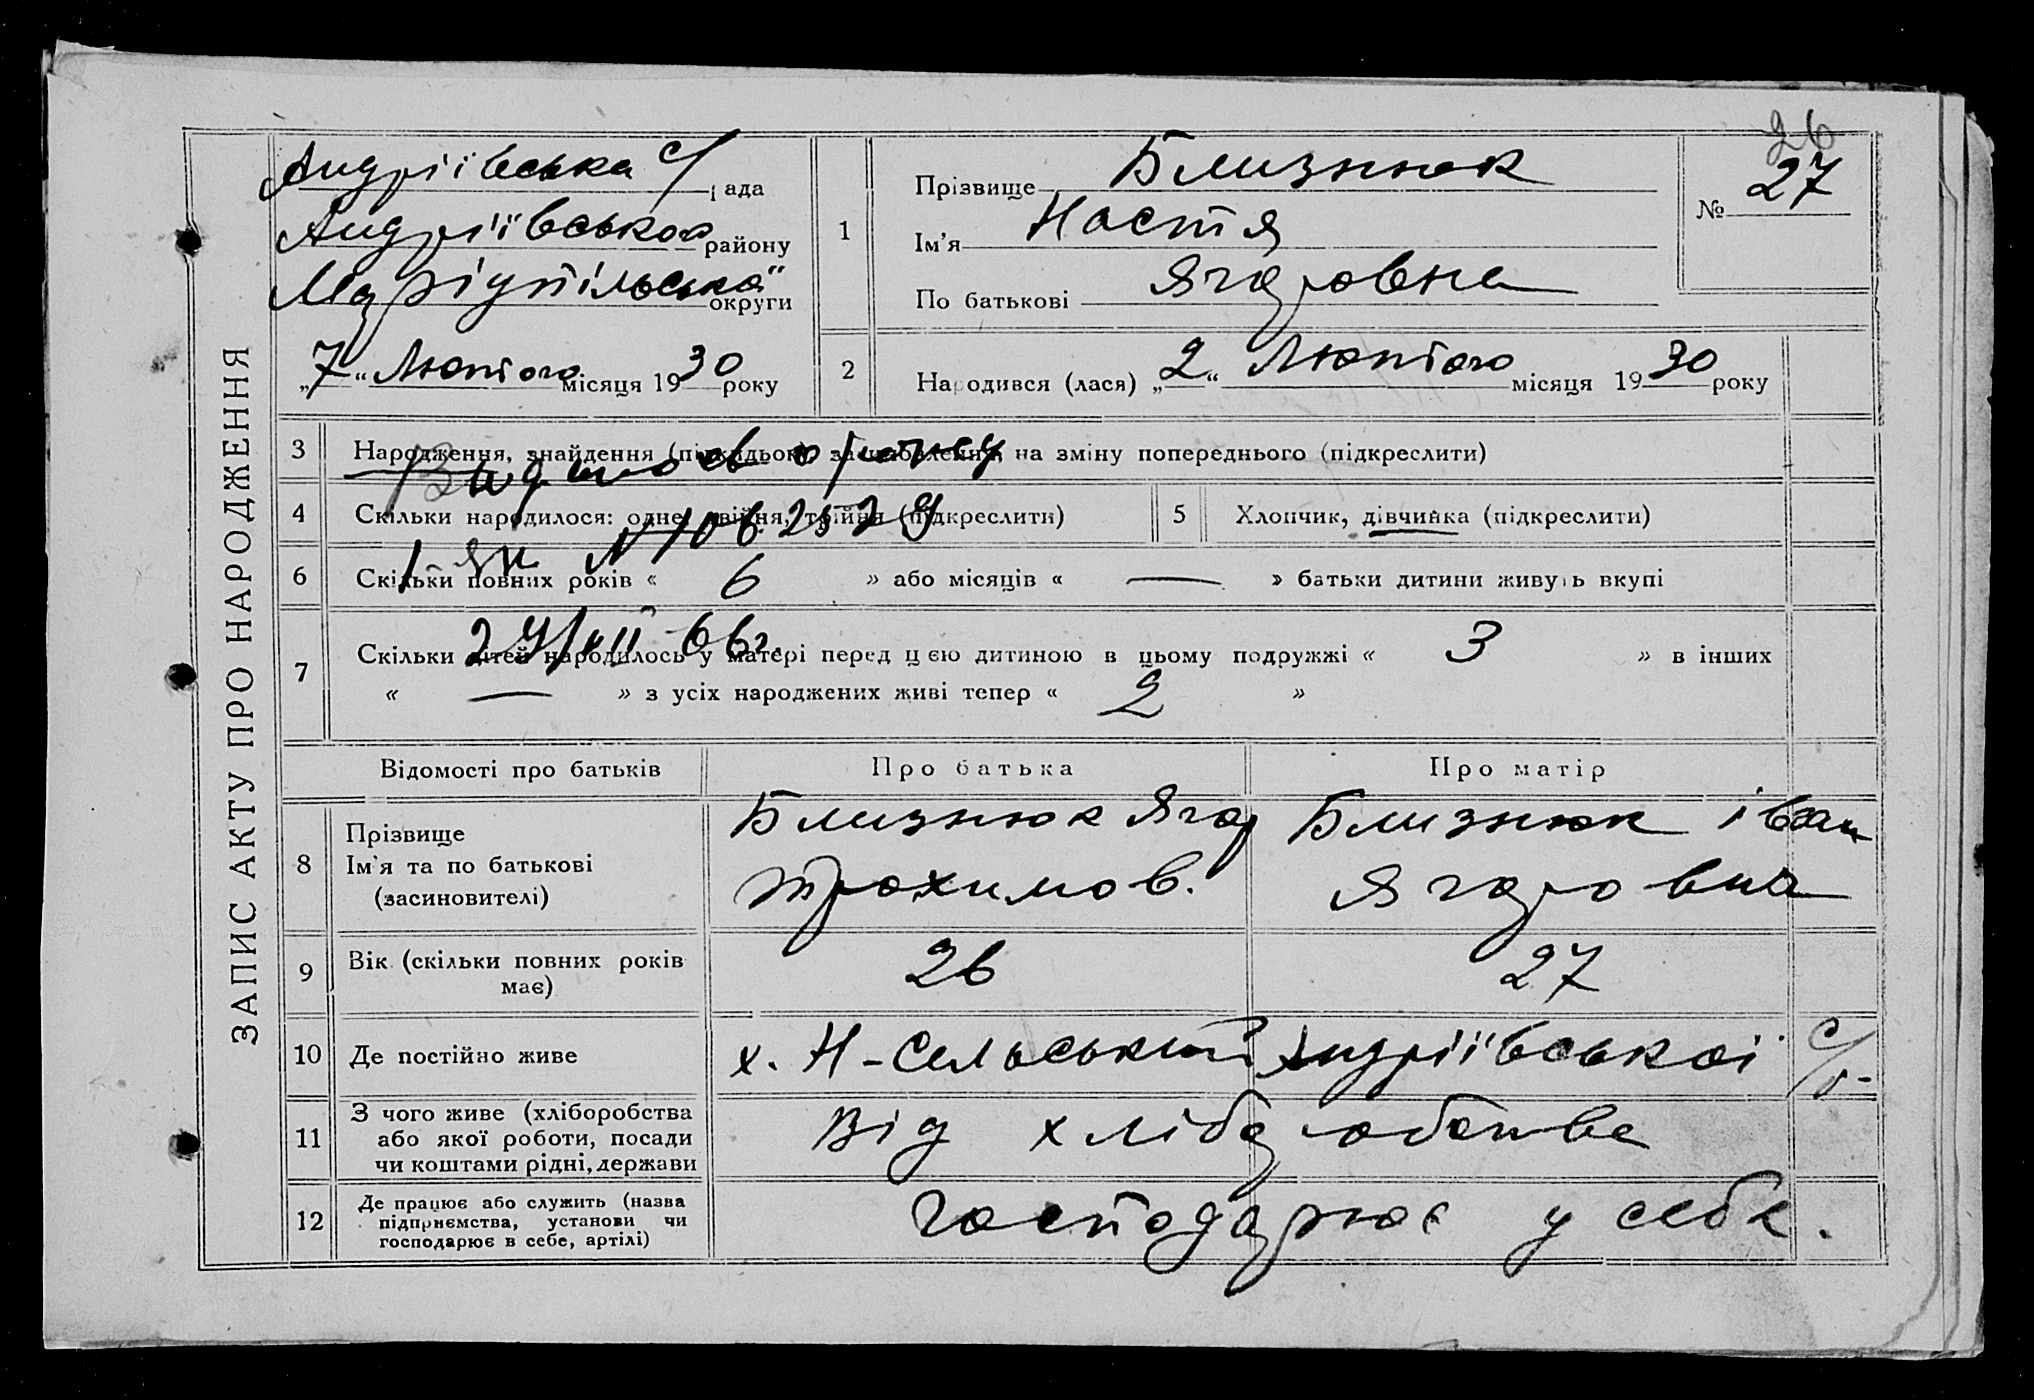 ЗАПИС АКТУ ПРО НАРОДЖЕННЯ
Андріївська с/рада
Андріївського району
Маріупільської округи
„7“ Лютого місяця 1930 року
1
Прізвище Близнюк
Ім'я Настя
По батькові Ягоровна
26
№ 27
2 Народився (лася) „2“ Лютого місяця 1930 року
3 Народження, знайдення (підкидьок), засиновлення, на зміну попереднього (підкреслити)
4 Скільки народилося: одне, двійня, трійня (підкреслити)
5 Хлопчик, дівчинка (підкреслити)
№ 1062529
6 Скільки повних років « 6 » або місяців « — » батьки дитини живуть вкупі
29/VII 66г.
7 Скільки дітей народилось у матері перед цією дитиною в цьому подружжі « 3 » в інших
« — » з усіх народжених живі тепер « 2 »
Відомості про батьків Про батька Про матір
8 Прізвище
Ім'я та по батькові
(засиновителі)
Близнюк Ягор
Трохимов.
Близнюк
Ягоровна
9 Вік (скільки повних років має) 26 27
10 Де постійно живе х. Н-Сельський Андріївської с/р-
11 З чого живе (хліборобства
або якої роботи, посади
чи коштами рідні, держави
Від хліборобства
12 Де працює або служить (назва
підприємства, установи чи
господарює в себе, артілі)
господарює у себе.